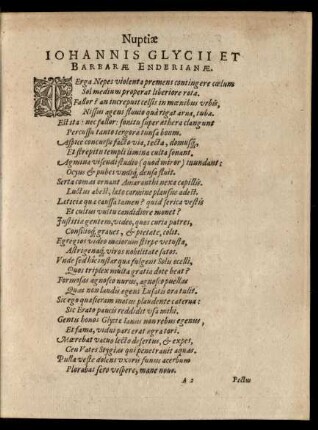 Nuptiæ
IOHANNIS GLYCII ET
BARBARÆ ENDERIANÆ.
TErga Nepes violenta premens contingere cœlum
Sol medium properat liberiore rota.
Fallor? an increpuit celsis in mœnibus vrbis,
Nissus agens fluuio quæ rigat arua, tuba.
Est ita: nec fallor: sonitu super æthera clangunt
Percussu tanto tergora tunsa boum.
Aspice concursu facto via, tecta, domusq́;,
Et strepitu templi limina cuncta sonant.
Agmina visendi studio (quod miror) inundant:
Ocyus & pubes vndiq́; densa fluit.
Serta comas ornant Amaranthi nexa capillis.
Luctus abest, læto carmine plausus adest.
Lætitiæ quæ caussa tamen? quid serica vestis
Et cultus vultu candidiore monet?
Iustitiæ gentem, video, quos curia patres,
Consilioq́; graues, & pietate, colit.
Egregios video mricorum stirpe vetusta,
Astrigenasq́; viros nobilitate satos.
Vnde sed hic instar quæ fulgent Solis ocelli,
Quos triplex multa gratia dote beat?
Formosas agnosco nurus, agnosco puellas
Quas non laudis egens Lusatis ora tulit.
Sic ego quæsieram multis plaudente caterua:
Sic Erato paucis reddidit vsa mihi.
Gentis honos Glycis Ianus non rebus egenus,
Et fama, viduus pars erat ægra tori.
Mœrebat vacuo lecto desertus, & expes,
Ceu Vates Stygias qui penetrauit aquas.
Pulla veste dolens vxoris funus acerbum
Plorabat sero vespere, mane nouo.
A 2
Pectus